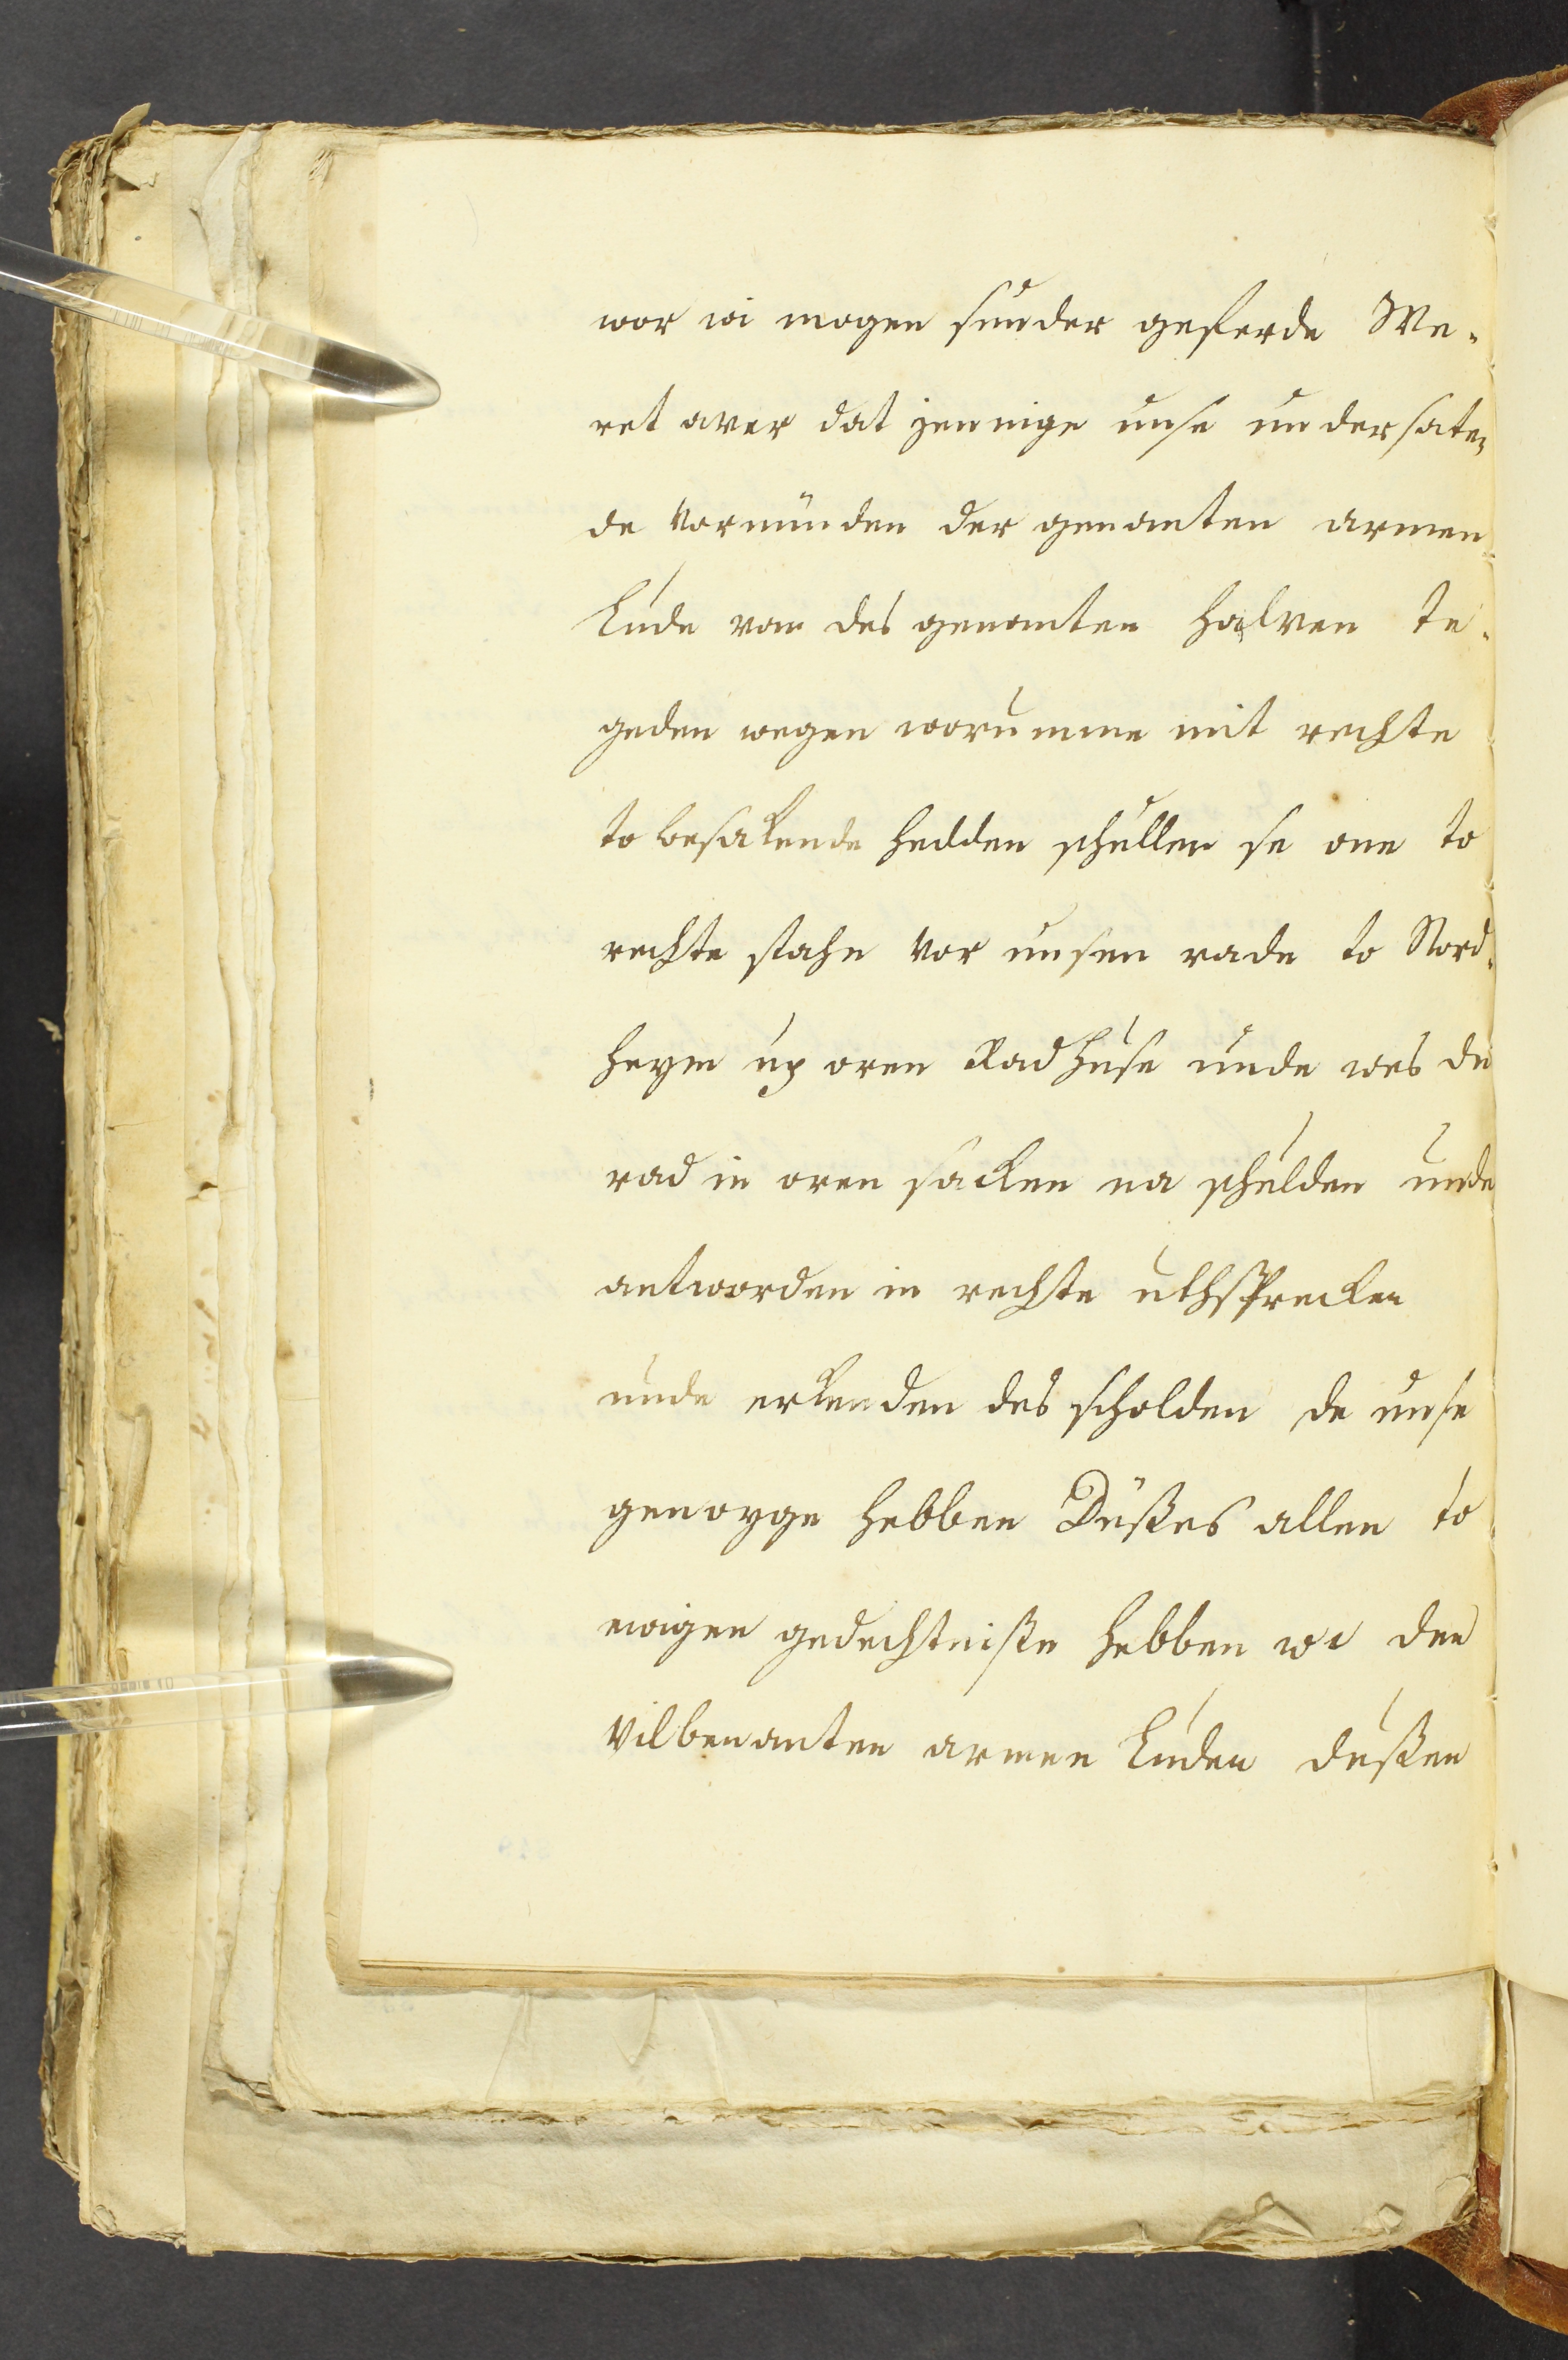 wor wi mogen sunder geferde We-
ret aver dat jennige unse undersaten
de Vormünden der genanten armen
Lude van des genanten halven te-
geden wegen worumme mit rechte
to besakende hedden schullen se one to
rechte stahn vor unsen rade to Nord-
heym up oren Radhuse unde wes de
rad in oren sacken na schulden unde
antworden in rechte uthsprecken
unde erkenden des scholden de unse
genoyge hebben Düßes allen to
ewigen gedechtniße hebben wi den
vilbenanten armen Luden dußen